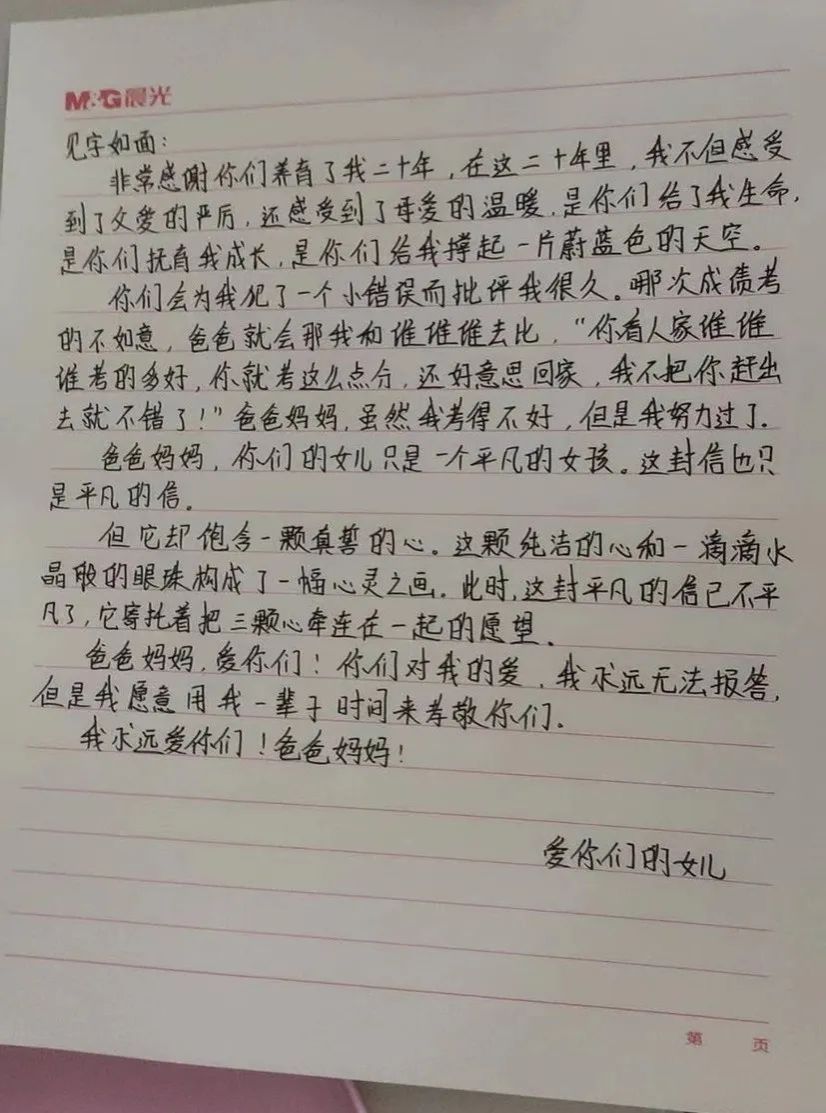 M&G晨光
见字如面：
非常感谢你们养育了我二十年，在这二十年里，我不但感受
到了父爱的严厉，还感受到了母爱的温暖，是你们给了我生命，
是你们抚育我成长，是你们给我撑起一片蔚蓝色的天空。
你们会为我犯了一个小错误而批评我很久。哪次成绩考
的不如意，爸爸就会那我和谁谁谁去比，“你看人家谁谁
谁考的多好，你就考这么点分，还好意思回家，我不把你赶出
去就不错了！”爸爸妈妈，虽然我考得不好，但是我努力过了。
爸爸妈妈，你们的女儿只是一个平凡的女孩。这封信也只
是平凡的信。
但它却饱含一颗真挚的心。这颗纯洁的心和一滴滴水
晶般的眼珠构成了一幅心灵之画。此时，这封平凡的信已不平
凡了，它寄托着把三颗心牵连在一起的愿望。
爸爸妈妈，爱你们！你们对我的爱，我永远无法报答，
但是我愿意用我一辈子时间来孝敬你们。
我永远爱你们！爸爸妈妈！
爱你们的女儿
第 页